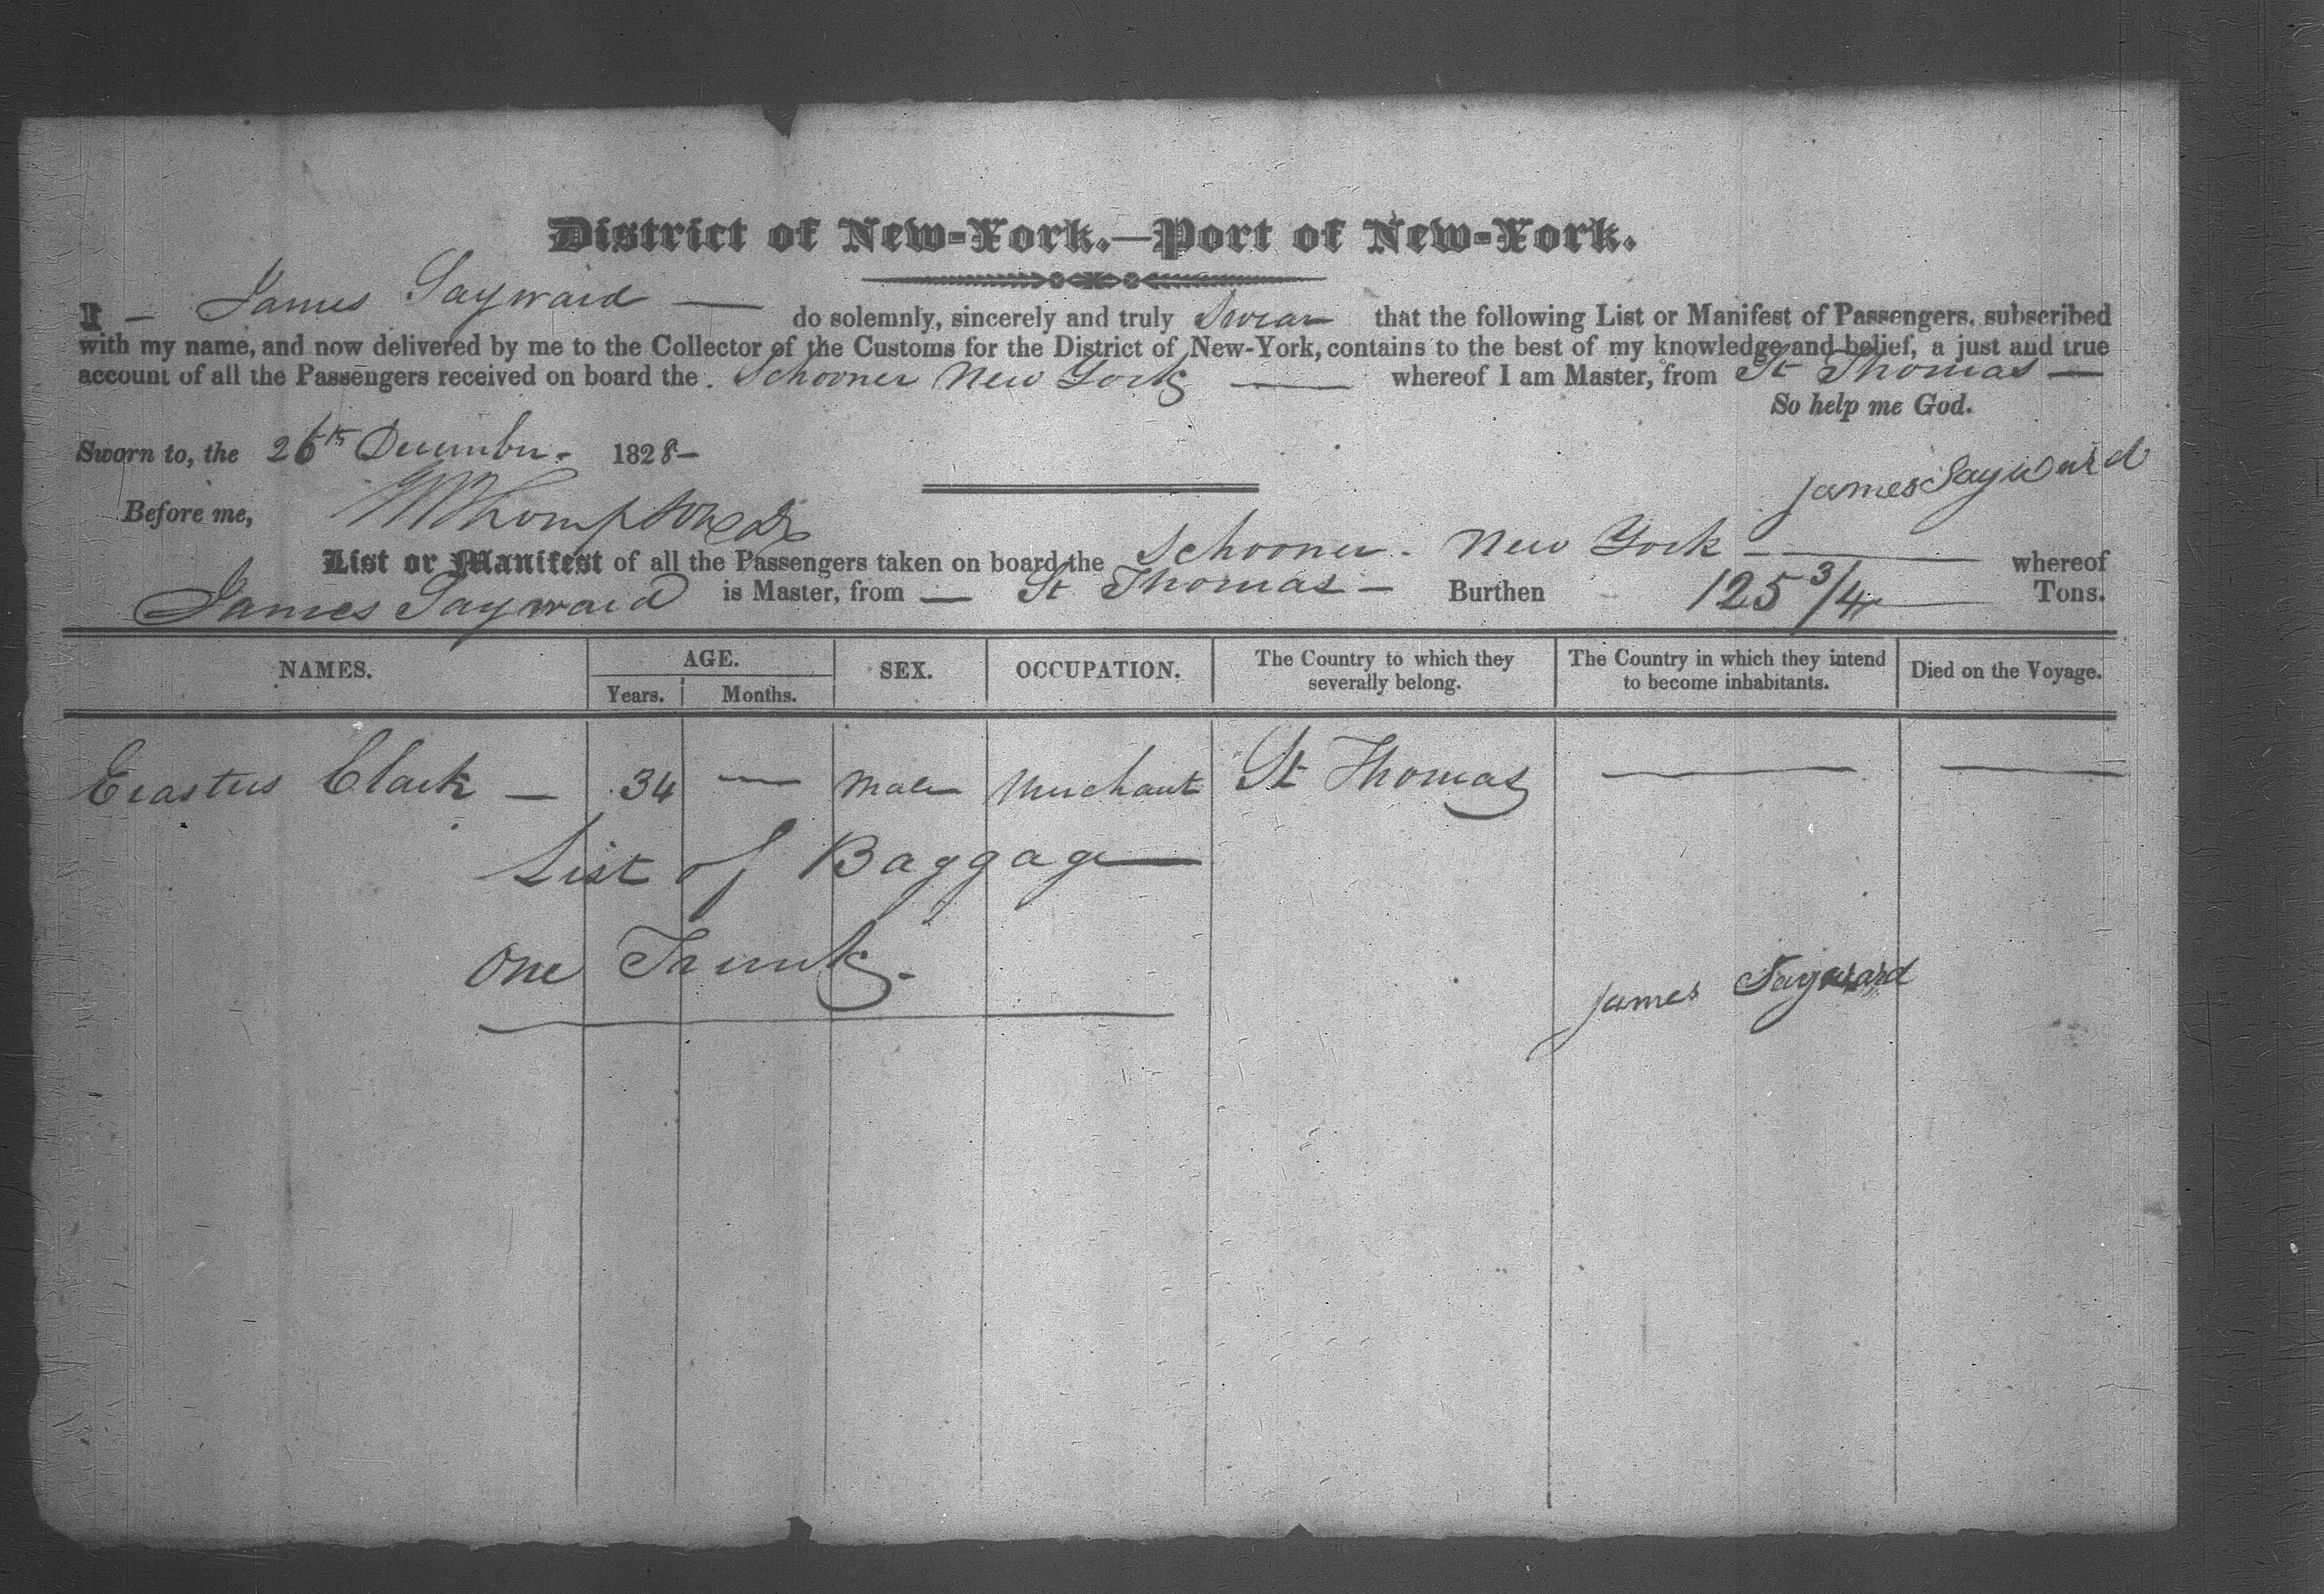 District of New-York.—Port of New-York.
I — James Sayward — do solemnly, sincerely and truly Swear that the following List or Manifest of Passengers, subscribed
with my name, and now delivered by me to the Collector of the Customs for the District of New-York, contains to the best of my knowledge and belief, a just and true
account of all the Passengers received on board the Schooner New York — whereof I am Master, from St Thomas —
So help me God.
Sworn to, the 26th December. 1828 —
James Sayward
Before me,
List or Manifest of all the Passengers taken on board the Schooner New York — whereof
James Sayward is Master, from — St Thomas — Burthen 125 3/4 Tons.
NAMES. AGE. SEX. OCCUPATION. The Country to which they severally belong. The Country in which they intend to become inhabitants. Died on the Voyage.
Years. Months.
Erastus Clark — 34 — Male Merchant St Thomas — —
List of Baggage
One Trunk.
James Sayward